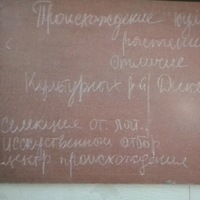 Происхождение кул
растени
отличие
Культурных р-й Дик
селекция от лат.
искусственный отбор
центр происхождения